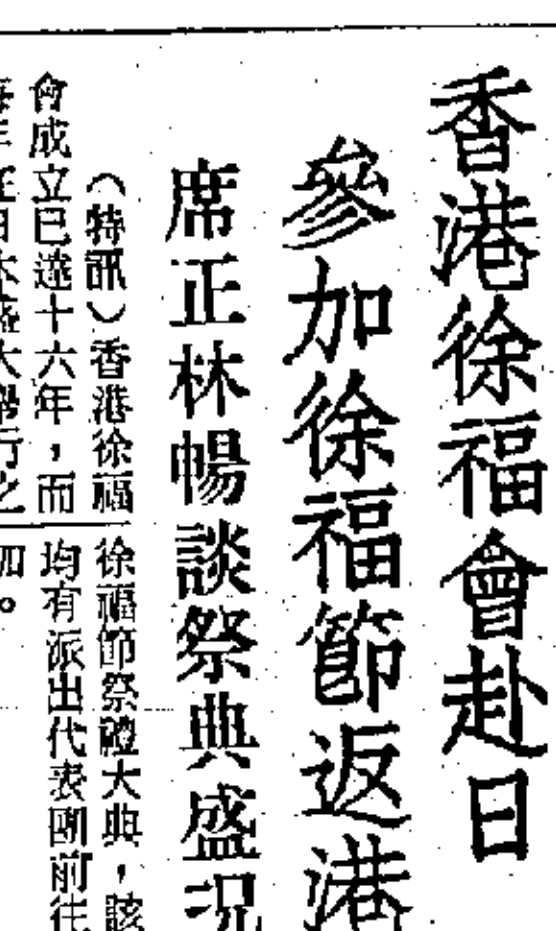 香港徐福會赴日
參加徐福節返港
席正林暢談祭典盛況
（特訊）香港徐福
會成立已達十六年，而
每年在日本盛大舉行之
徐福節祭禮大典，該
均有派出代表團前往
加。